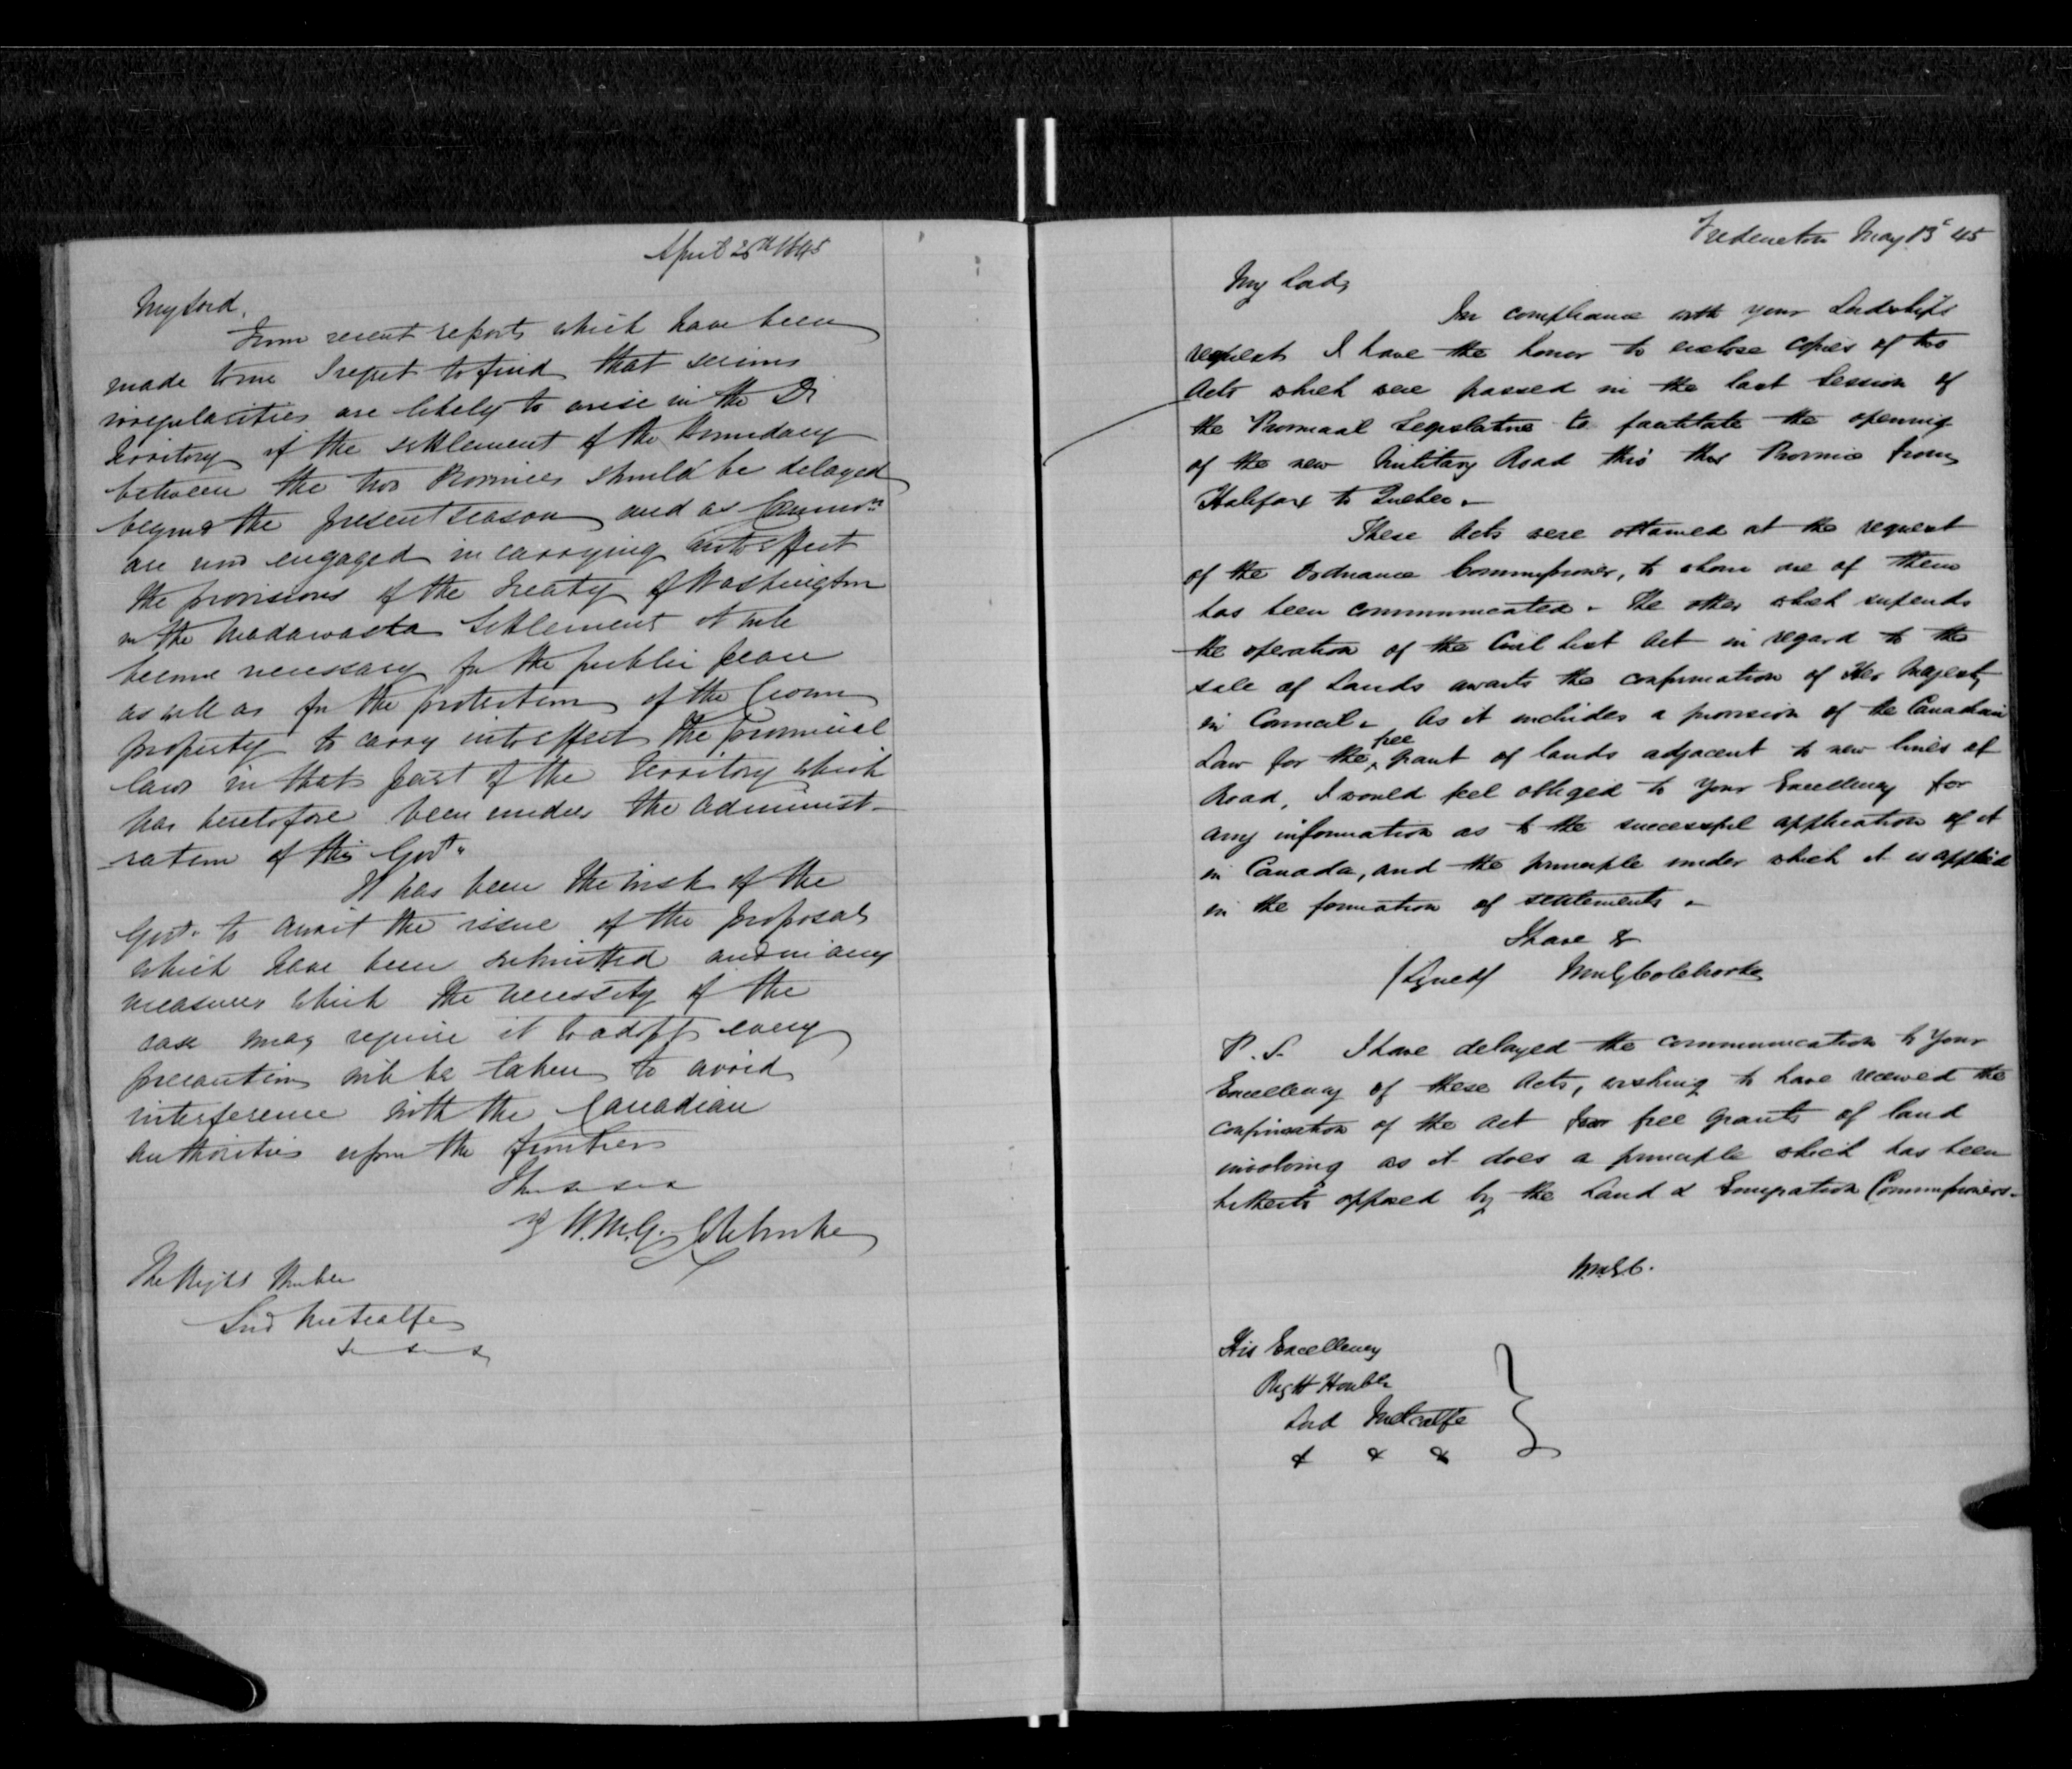 April 25th 1845
My Lord,
From recent reports which have been
made to me I regret to find that serious
irregularities are likely to arise in the Di
Territory if the settlement of the boundary
between the two Provinces should be delayed
beyond the present season and as Commrs
are now engaged in carrying into effect
the provisions of the Treaty of Washington
in the Madawaska Settlement it will
become necessary for the public peace
as well as for the protection of the Crown
property to carry into effect the provincial
laws in that part of the Territory which
has heretofore been under the administ-
ration of this Govt.
It has been the wish of the
Govt. to await the issue of the proposals
which have been submitted and in any
measures which the necessity of the
case may require it to adopt every
precaution will be taken to avoid
interference with the Canadian
authorities upon the frontiers
W.M.G. Colebrooke
The Right Honble
Lord Metcalfe
& & &
Fredericton May 13th 45
My Lord,
In compliance with your Lordship's
request I have the honor to enclose copies of two
Acts which were passed in the last Session of
the Provincial Legislature to facilitate the opening
of the new Military Road thro' this Province from
Halifax to Quebec.
These Acts were obtained at the request
of the Ordnance Commissioner, to whom one of them
has been communicated. The other which suspends
the operation of the Civil List Act in regard to the
sale of Lands awaits the confirmation of Her Majesty
in Council. As it includes a provision of the Canadian
Law for the free grant of lands adjacent to new lines of
Road, I would feel obliged to Your Excellency for
any information as to the successful application of it
in Canada, and the principle under which it is applied
in the formation of settlements.
I have &
(Signed) Wm G Colebrooke
P.S. I have delayed the communication to Your
Excellency of these Acts, wishing to have received the
confirmation of the Act for free grants of land
involving as it does a principle which has been
hitherto opposed by the Land & Emigration Commissioners.
W.M.G.C.
His Excellency
Right Honble
Lord Metcalfe
& & &